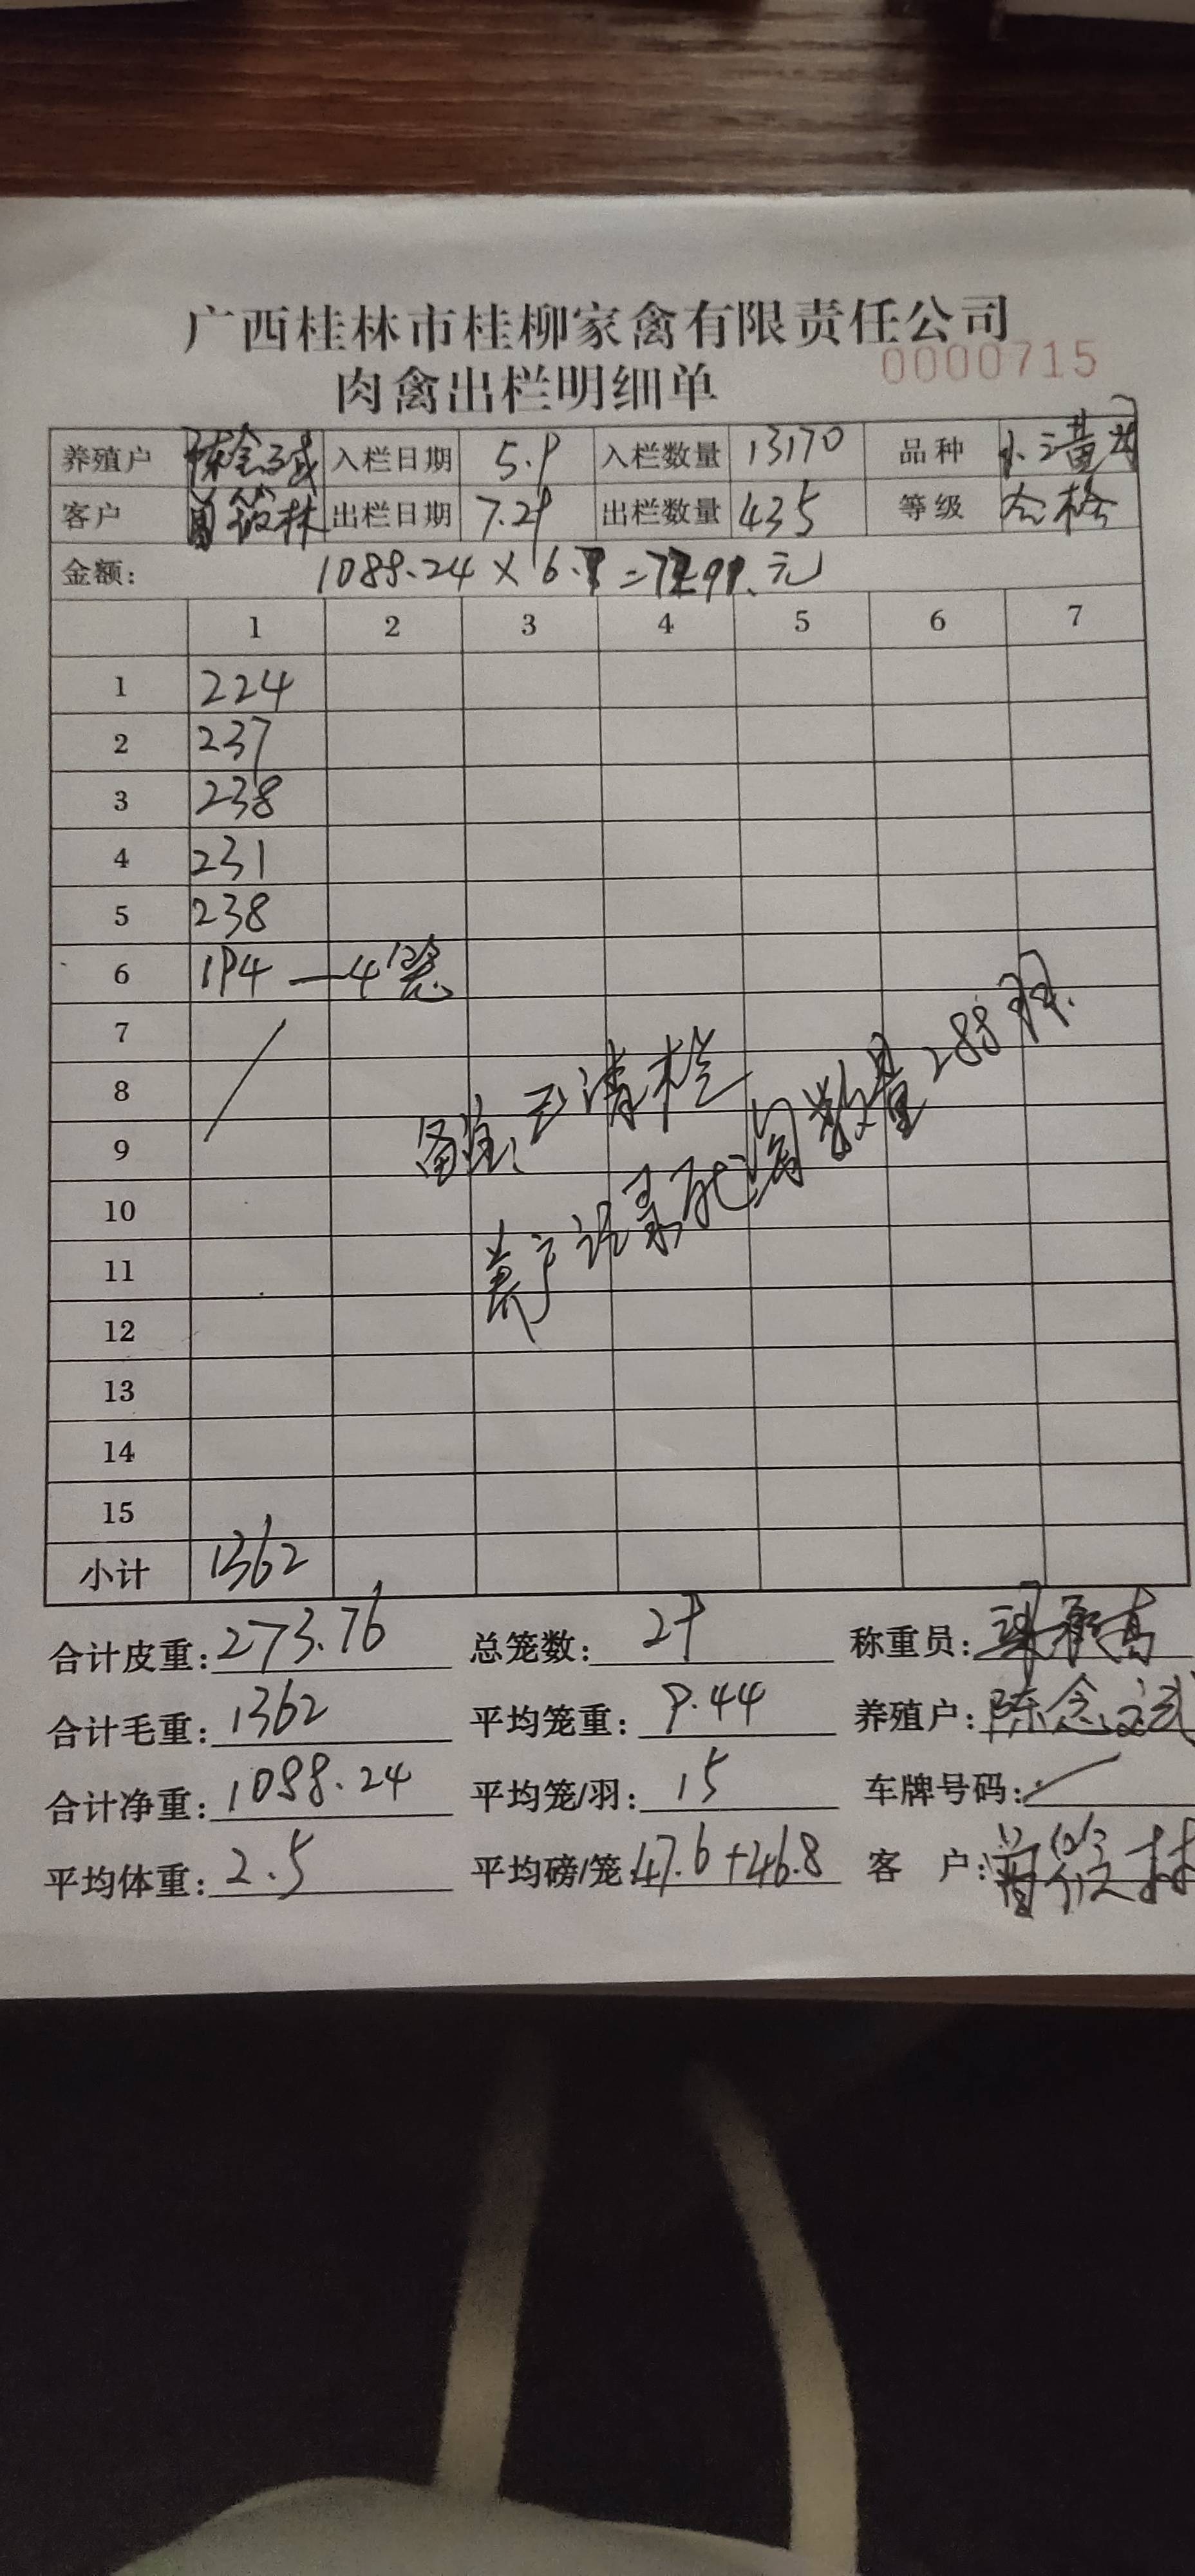 广西桂林市桂柳家禽有限责任公司
肉禽出栏明细单 0000715
养殖户 陈念武 入栏日期 5.9 入栏数量 13170 品种 小三黄
客户 林 出栏日期 7.29 出栏数量 435 等级 合格
金额: 1088.24 × 6. = 元
1 2 3 4 5 6 7
1 224
2 237
3 238
4 231
5 238
6 194 — 4笼
7
8
9
备注: 已清栏
养户记录死淘数量288羽.
10
11
12
13
14
15
小计 1362
合计皮重: 273.76 总笼数: 29 称重员:
合计毛重: 1362 平均笼重: 9.44 养殖户: 陈念武
合计净重: 1088.24 平均笼/羽: 15 车牌号码:
平均体重: 2.5 平均磅/笼: 47.6+46.8 客 户: 林